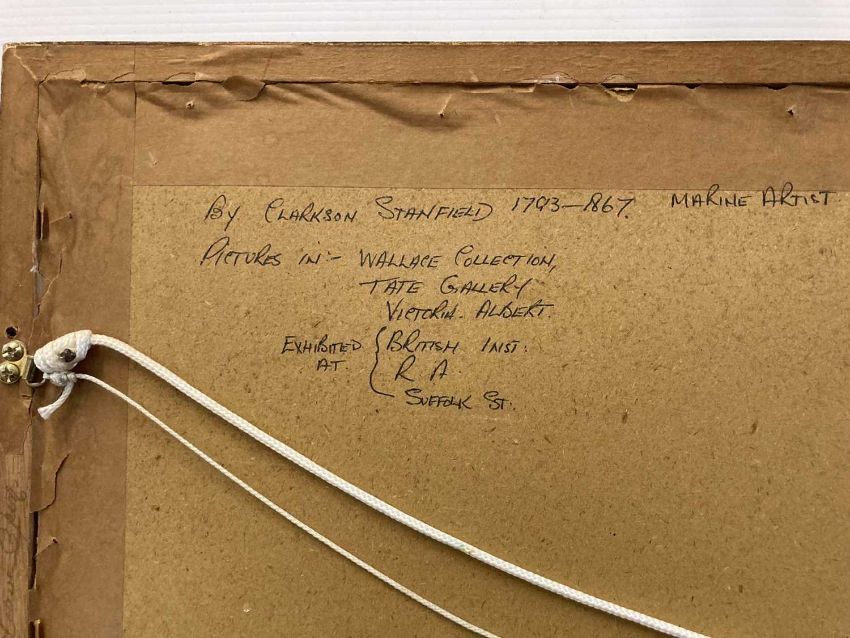 By Clarkson Stanfield 1793-1867. Marine Artist
Pictures in:- Wallace Collection,
Tate Gallery
Victoria. Albert.
Exhibited at { British Inst:
R A.
Suffolk St.